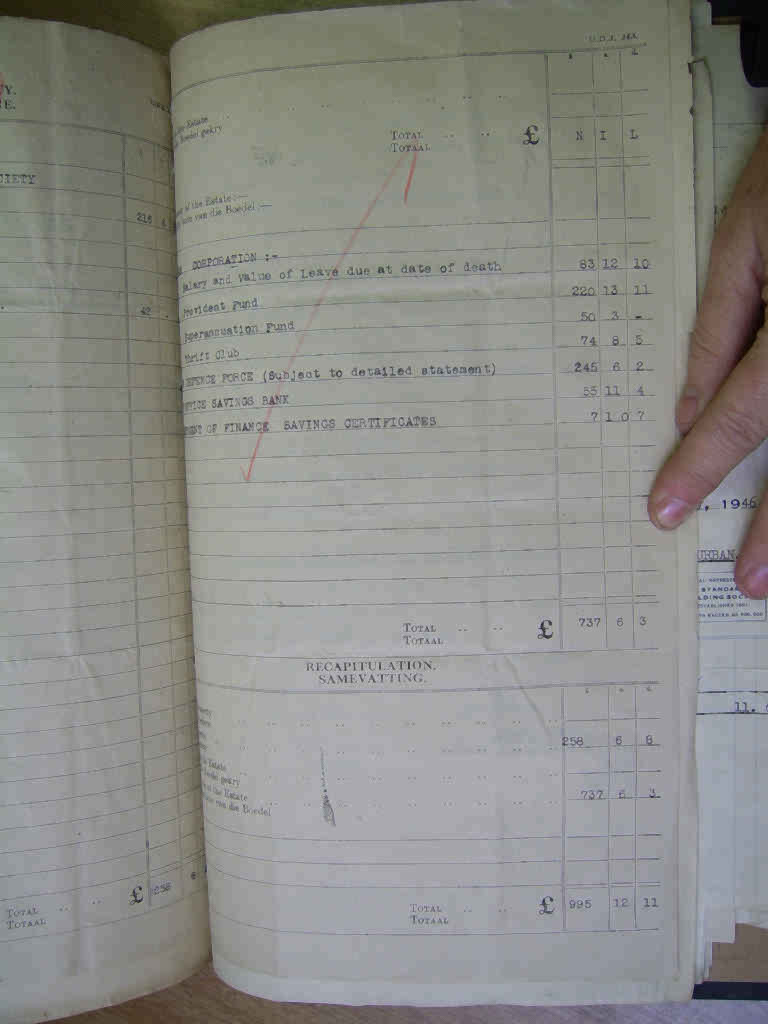 Y.
E.
CIETY
216
42
TOTAL .. .. £ 258 6
TOTAAL
U.D.J. 243.
£ s. d.
Estate
Boedel gekry
TOTAL .. .. £ N I L
TOTAAL
of the Estate:—
van die Boedel:—
CORPORATION :-
Salary and Value of Leave due at date of death 83 12 10
Provident Fund 220 13 11
Superannuation Fund 50 3 -
Thrift Club 74 8 5
DEFENCE FORCE (Subject to detailed statement) 245 6 2
SAVINGS BANK 55 11 4
OF FINANCE SAVINGS CERTIFICATES 7 10 7
TOTAL .. .. £ 737 6 3
TOTAAL
RECAPITULATION.
SAMEVATTING.
£ s. d.
258 6 8
the Estate
Boedel gekry
of the Estate
van die Boedel 737 6 3
TOTAL .. .. £ 995 12 11
TOTAAL
, 1946
URBAN.
STANDA
LDING SOC
ESTABLISHED
11.